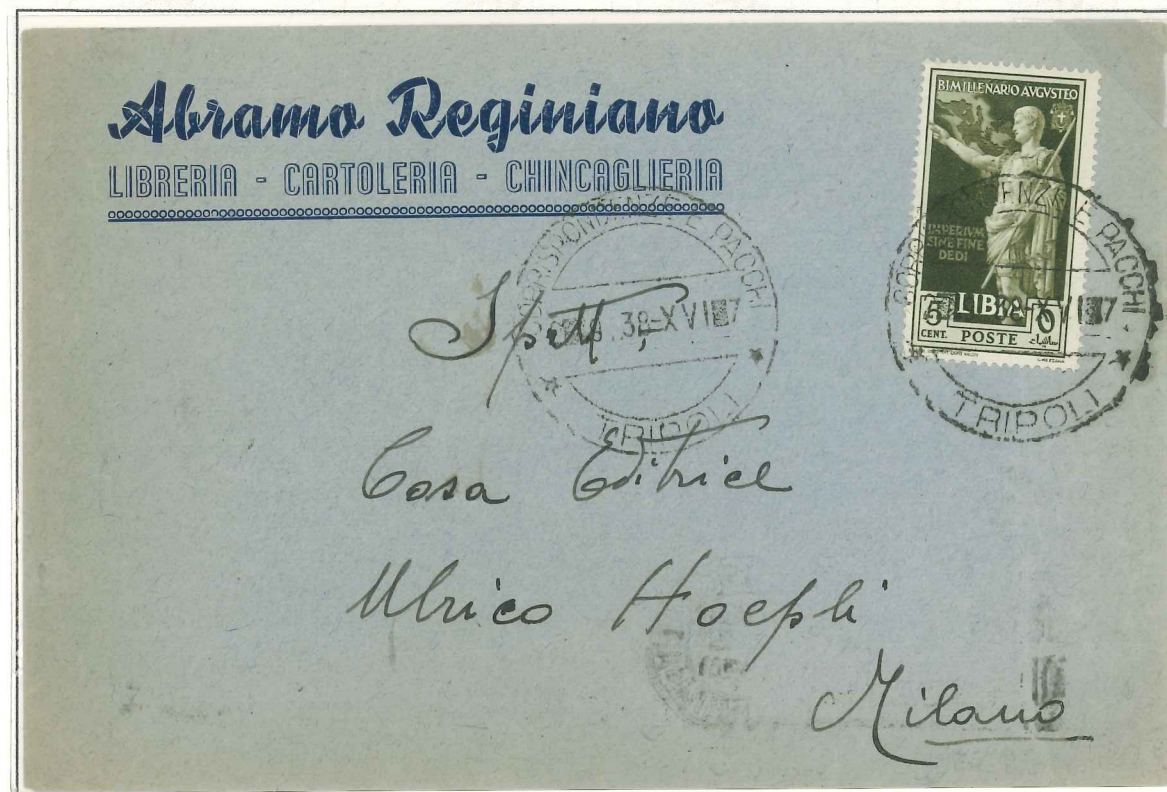 Abramo Reginiano
LIBRERIA - CARTOLERIA - CHINCAGLIERIA
BIMILLENARIO AVGVSTEO
IMPERIVM
SINE FINE
DEDI
5 LIBIA
CENT. POSTE
CORRISPONDENZE E PACCHI
38-XVI 17
TRIPOLI
CORRISPONDENZE E PACCHI
38-XVI 17
TRIPOLI
Spett.
Casa Editrice
Ulrico Hoepli
Milano